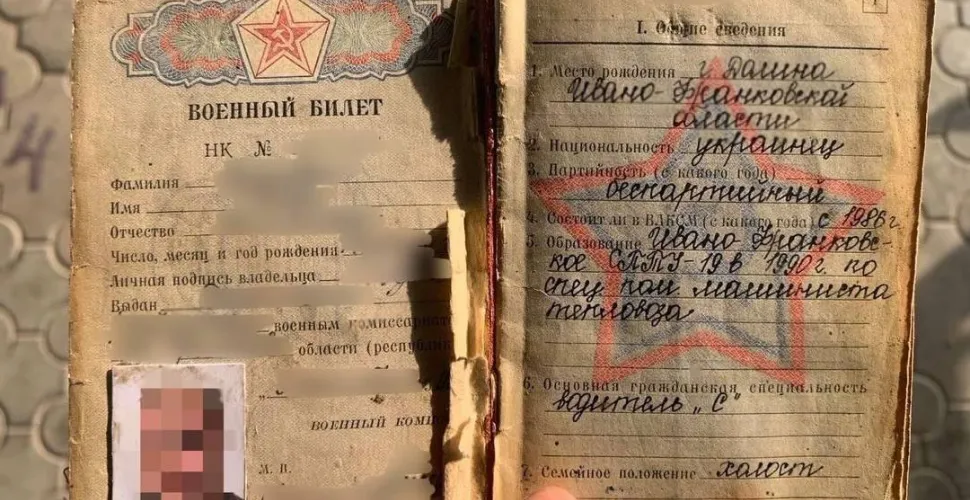 ВОЕННЫЙ БИЛЕТ
НК №
Фамилия
Имя
Отчество
Число, месяц и год рождения
Личная подпись владельца
Выдан
военным комиссариат
области (республик
ВОЕННЫЙ КОМИ
М. П.
1
I. Общие сведения
1. Место рождения г. Долина
Ивано-Франковской
области
2. Национальность украинец
3. Партийность (с какого года)
беспартийный
4. Состоит ли в ВЛКСМ (с какого года) с 1986г
5. Образование Ивано-Франковс-
кое СПТУ-19 в 1990г по
спец пом машиниста
тепловоза
6. Основная гражданская специальность
водитель „С"
7. Семейное положение холост